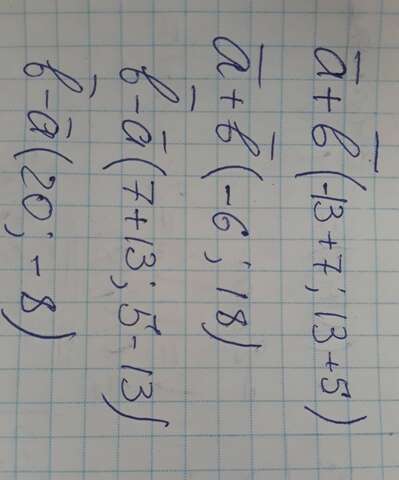 a̅+b̅(-13+7; 13+5)
a̅+b̅(-6; 18)
b̅-a̅(7+13; 5-13)
b̅-a̅(20; -8)